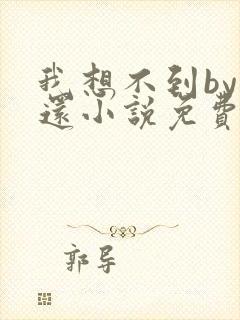 我想不到by
還小說免費
郭导